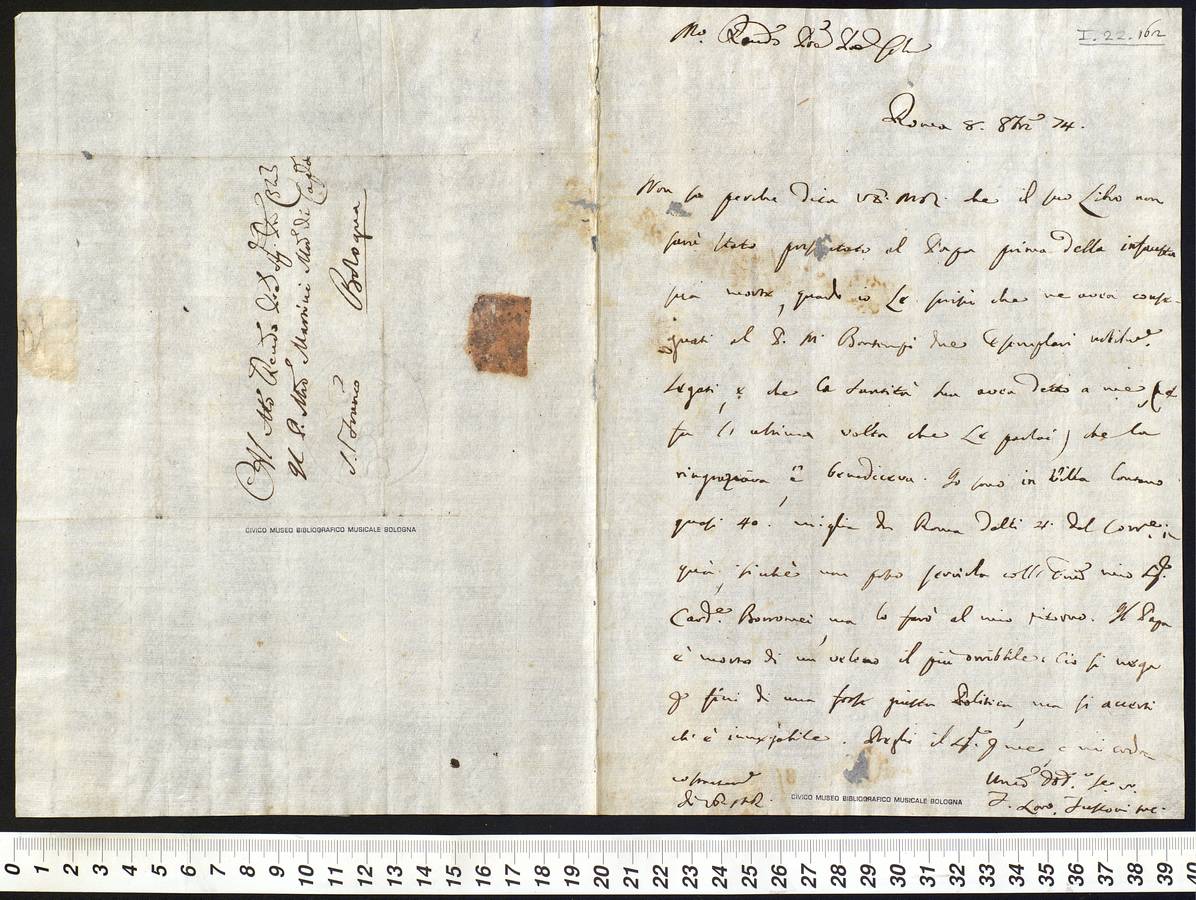 Al Mto Rendo
Il P. Mro Martini Mro di Capla
S. Franco
Bologna
CIVICO MUSEO BIBLIOGRAFICO MUSICALE BOLOGNA
I. 22. 162
Mto Rendo
Roma 8. 8bre 74.
Non so perche dica che il suo Libro non
sarà stato presentato al Papa prima della infausta
sua morte, quando io Le scrissi che ne avea conse-
gnati al P. M. Bontempi due Esemplari
Legati, e che la Santità sua avea detto a me (et
fu l'ultima volta che Le parlai) che la
ringraziava e benediceva. Io sono in Villa lontano
quasi 40. miglia da Roma dalli 21. del in
quà, sicchè non posso servirla coll' mio
Card.e Borromei, ma lo farò al mio ritorno. Il Papa
è morto di un veleno il più orribile: Ciò si nega
fini di una forse giusta Politica, ma si accerti
ch'è innegabile. Preghi il me, e mi creda
di
CIVICO MUSEO BIBLIOGRAFICO MUSICALE BOLOGNA
0 1 2 3 4 5 6 7 8 9 10 11 12 13 14 15 16 17 18 19 20 21 22 23 24 25 26 27 28 29 30 31 32 33 34 35 36 37 38 39 40